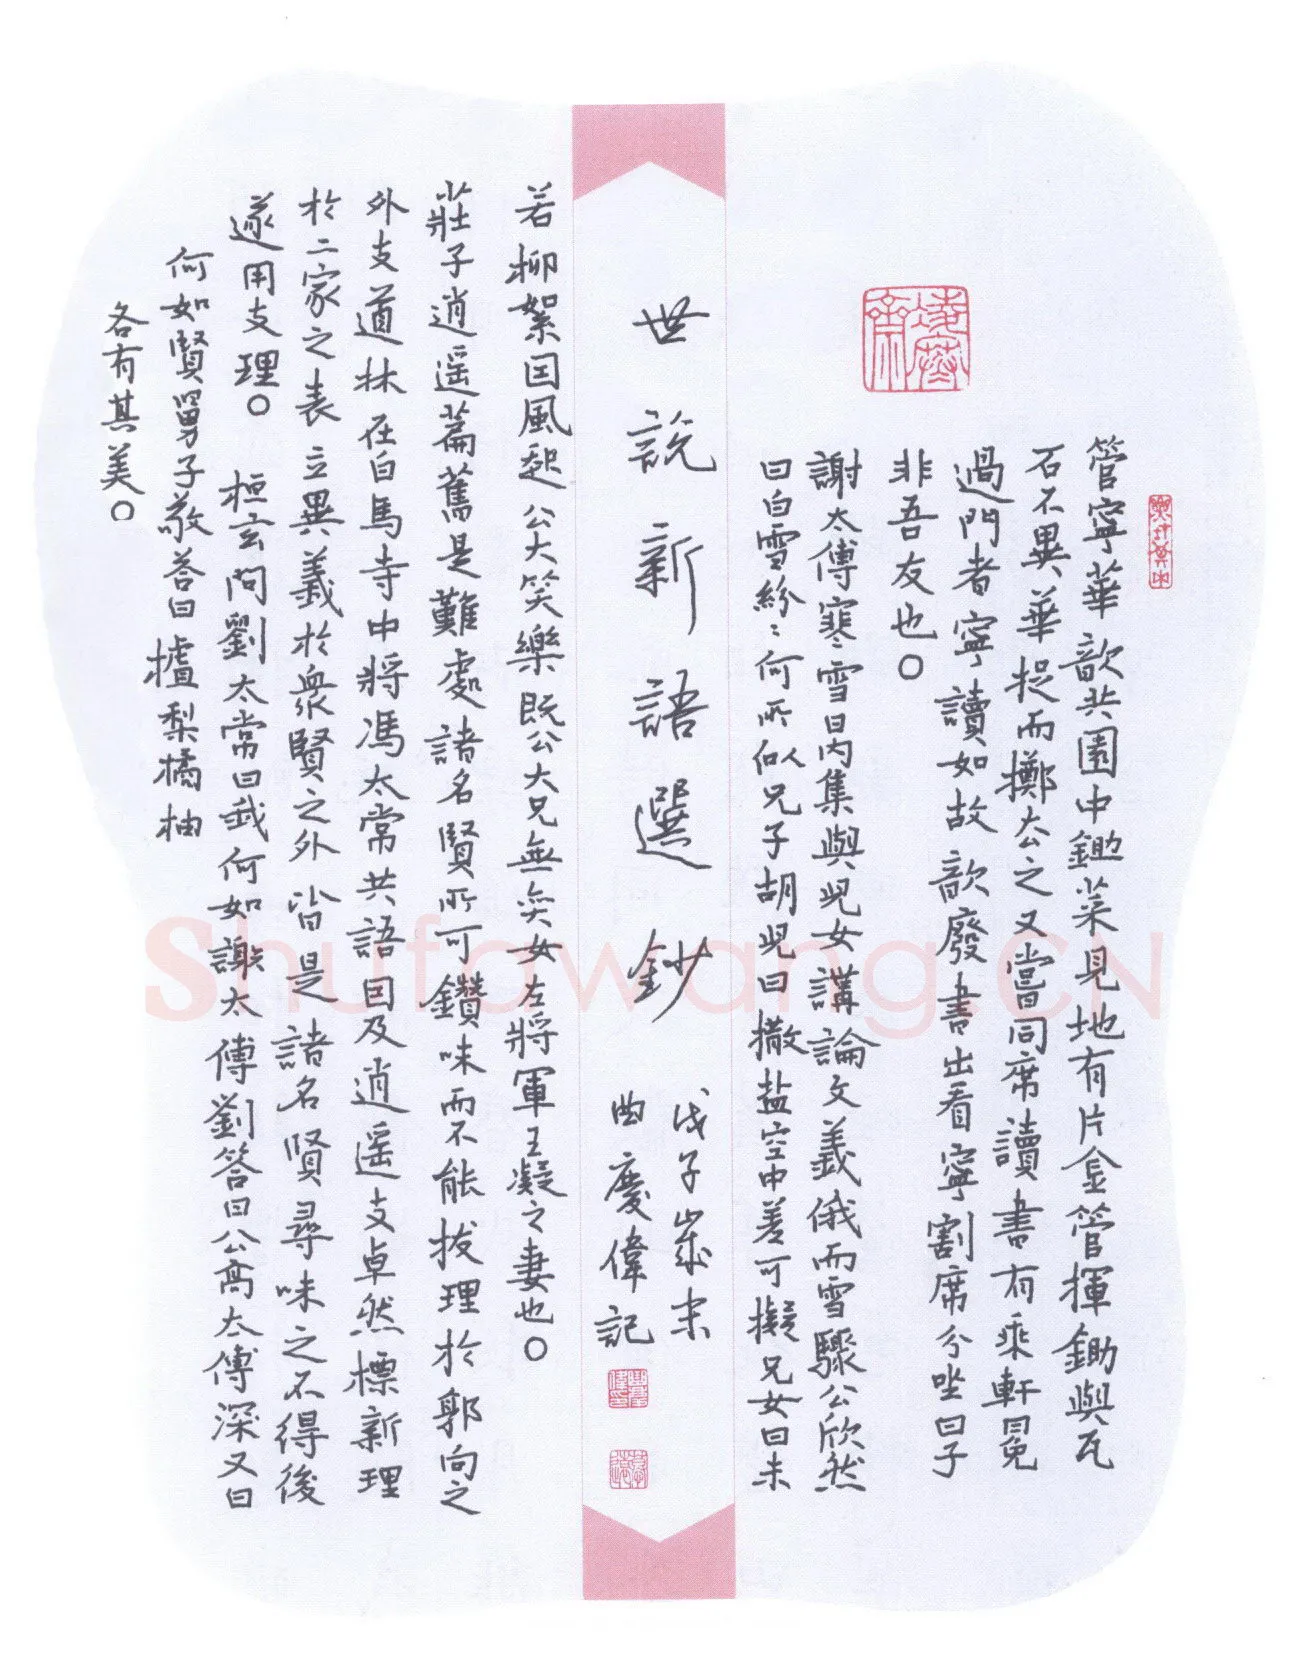 管寧華歆共園中鋤菜見地有片金管揮鋤與瓦
石不異華捉而擲去之又嘗同席讀書有乘軒冕
過門者寧讀如故歆廢書出看寧割席分坐曰子
非吾友也○
謝太傅寒雪日内集與兒女講論文義俄而雪驟公欣然
曰白雪紛〻何所似兄子胡兒曰撒盐空中差可擬兄女曰未
世說新語選鈔
戊子歲末
曲慶偉記
若柳絮因風起公大笑樂既公大兄無奕女左將軍王凝之妻也○
莊子逍遥篇舊是難處諸名賢所可鑽味而不能拔理於郭向之
外支道林在白馬寺中將馮太常共語因及逍遥支卓然標新理
於二家之表立異義於衆賢之外皆是諸名賢尋味之不得後
遂用支理○ 桓玄問劉太常曰我何如謝太傅劉答曰公高太傅深又曰
何如賢舅子敬答曰樝梨橘柚
各有其美○
Shufawang.CN